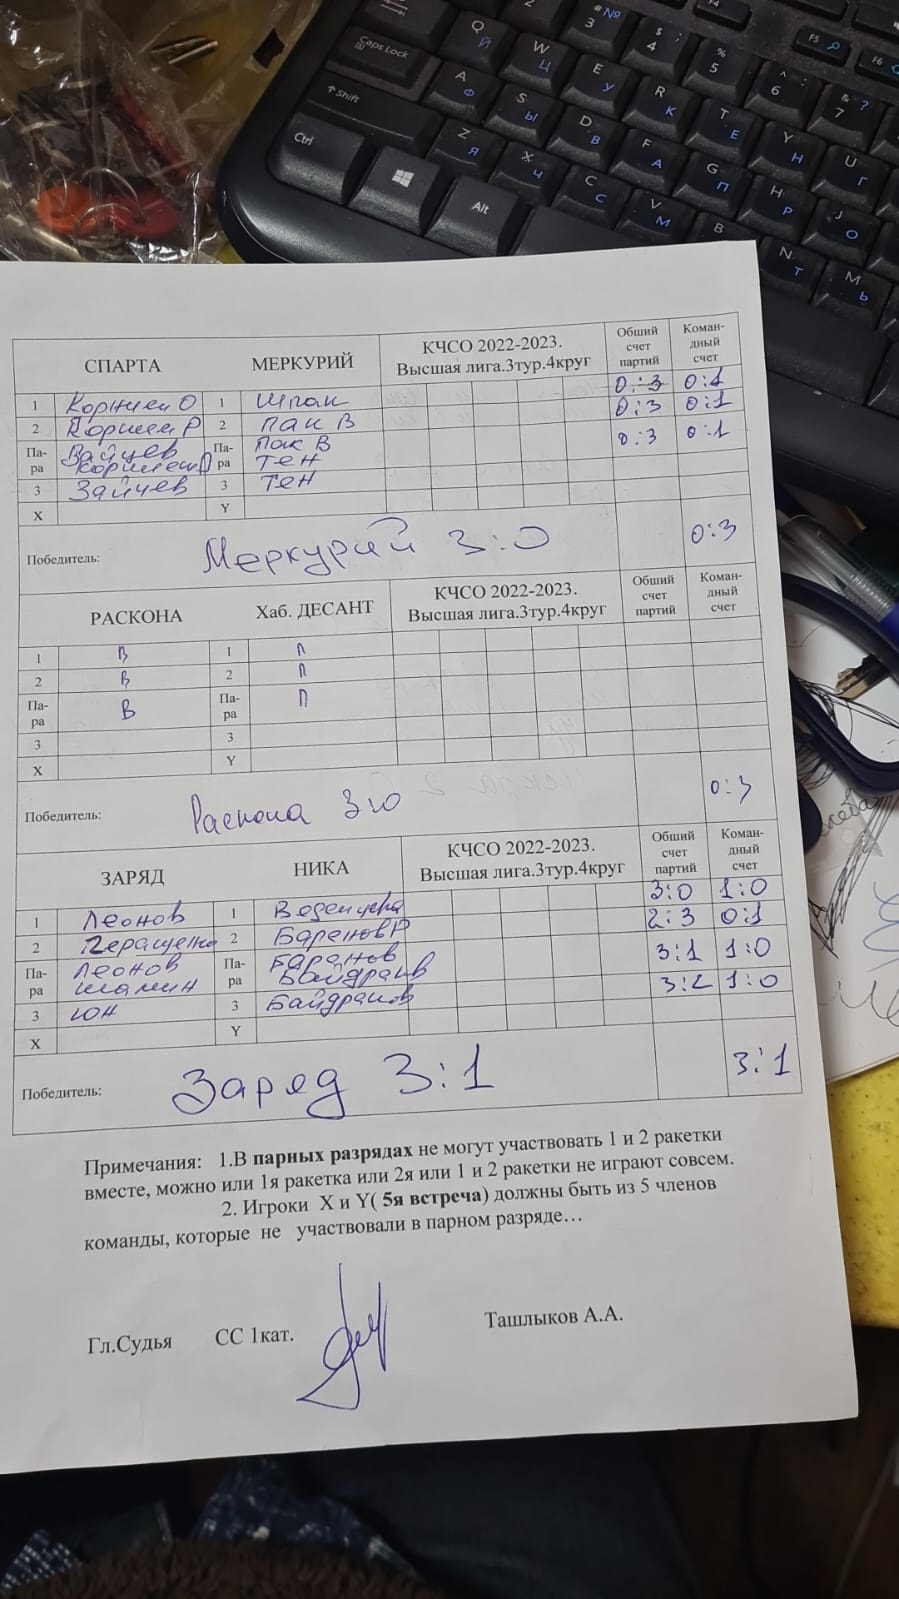 Caps Lock
Shift
Ctrl
Alt
СПАРТА МЕРКУРИЙ КЧСО 2022-2023. Высшая лига.3тур.4круг Обший счет партий Коман-дный счет
1 Коршен О 1 Шпак 0:3 0:1
2 Коршен Р 2 Пак В 0:3 0:1
Па-ра Зайцев Па-ра Пак В 0:3 0:1
Тен
3 Зайчев 3 Тен
X Y
Победитель: Меркурий 3:0 0:3
РАСКОНА Хаб. ДЕСАНТ КЧСО 2022-2023. Высшая лига.3тур.4круг Обший счет партий Коман-дный счет
1 В 1 П
2 В 2 П
Па-ра В Па-ра П
3 3
X Y
Победитель: Раскона 3:0 0:3
ЗАРЯД НИКА КЧСО 2022-2023. Высшая лига.3тур.4круг Обший счет партий Коман-дный счет
1 Леонов 1 3:0 1:0
2 2 Баренов Р 2:3 0:1
Па-ра Леонов Па-ра Баранов 3:1 1:0
Шамин
3 Юн 3 Байдраков 3:2 1:0
X Y
Победитель: Заряд 3:1 3:1
Примечания: 1.В парных разрядах не могут участвовать 1 и 2 ракетки
вместе, можно или 1я ракетка или 2я или 1 и 2 ракетки не играют совсем.
2. Игроки X и Y( 5я встреча) должны быть из 5 членов
команды, которые не участвовали в парном разряде…
Гл.Судья СС 1кат. Ташлыков А.А.